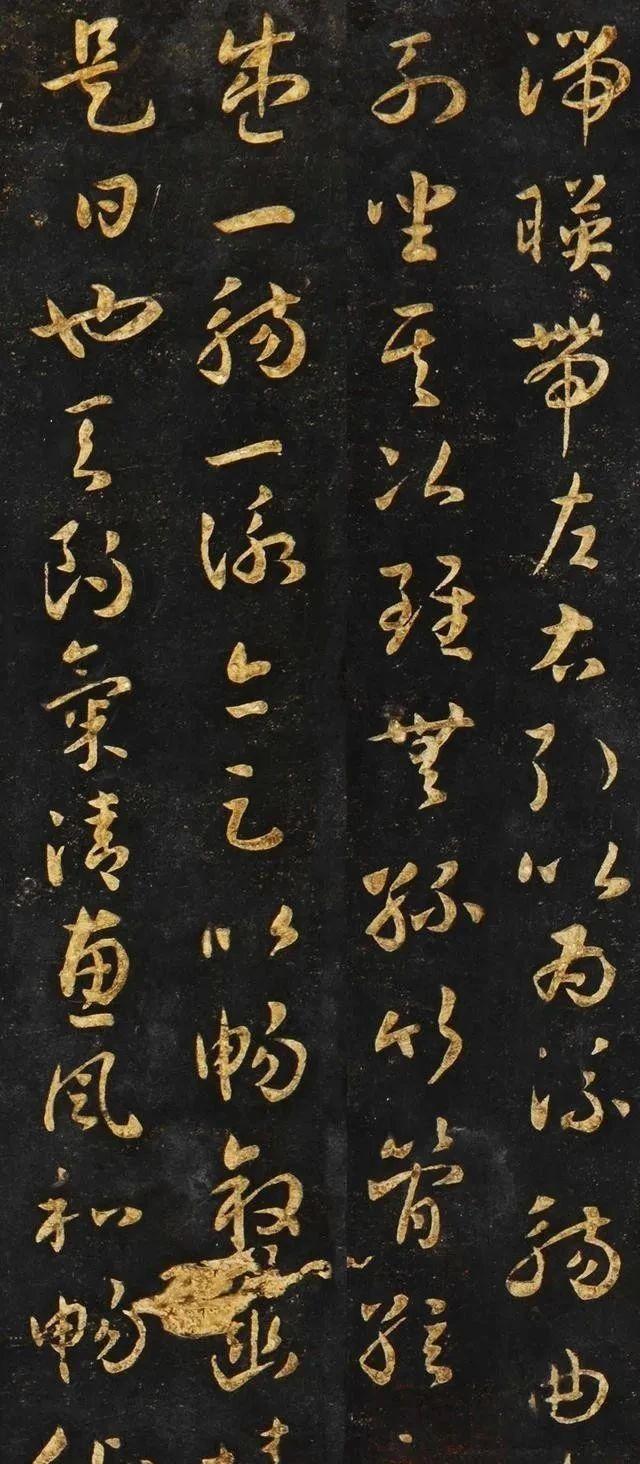 湍暎帶左右引以為流觴曲
列坐其次雖無絲竹管絃
盛一觴一詠亦足以暢敘幽
是日也天朗氣清惠風和暢